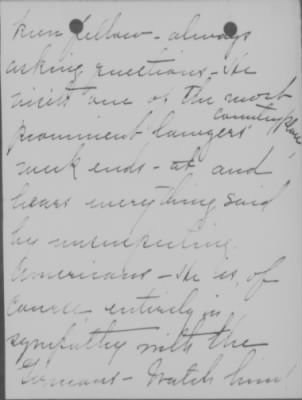 keen fellow - always
asking questions - He
visits one of the most
prominent lawyers country place
week ends - at and
hears everything said
by unsuspecting
Americans - He is, of
course entirely in
sympathy with the
Germans - Watch him!